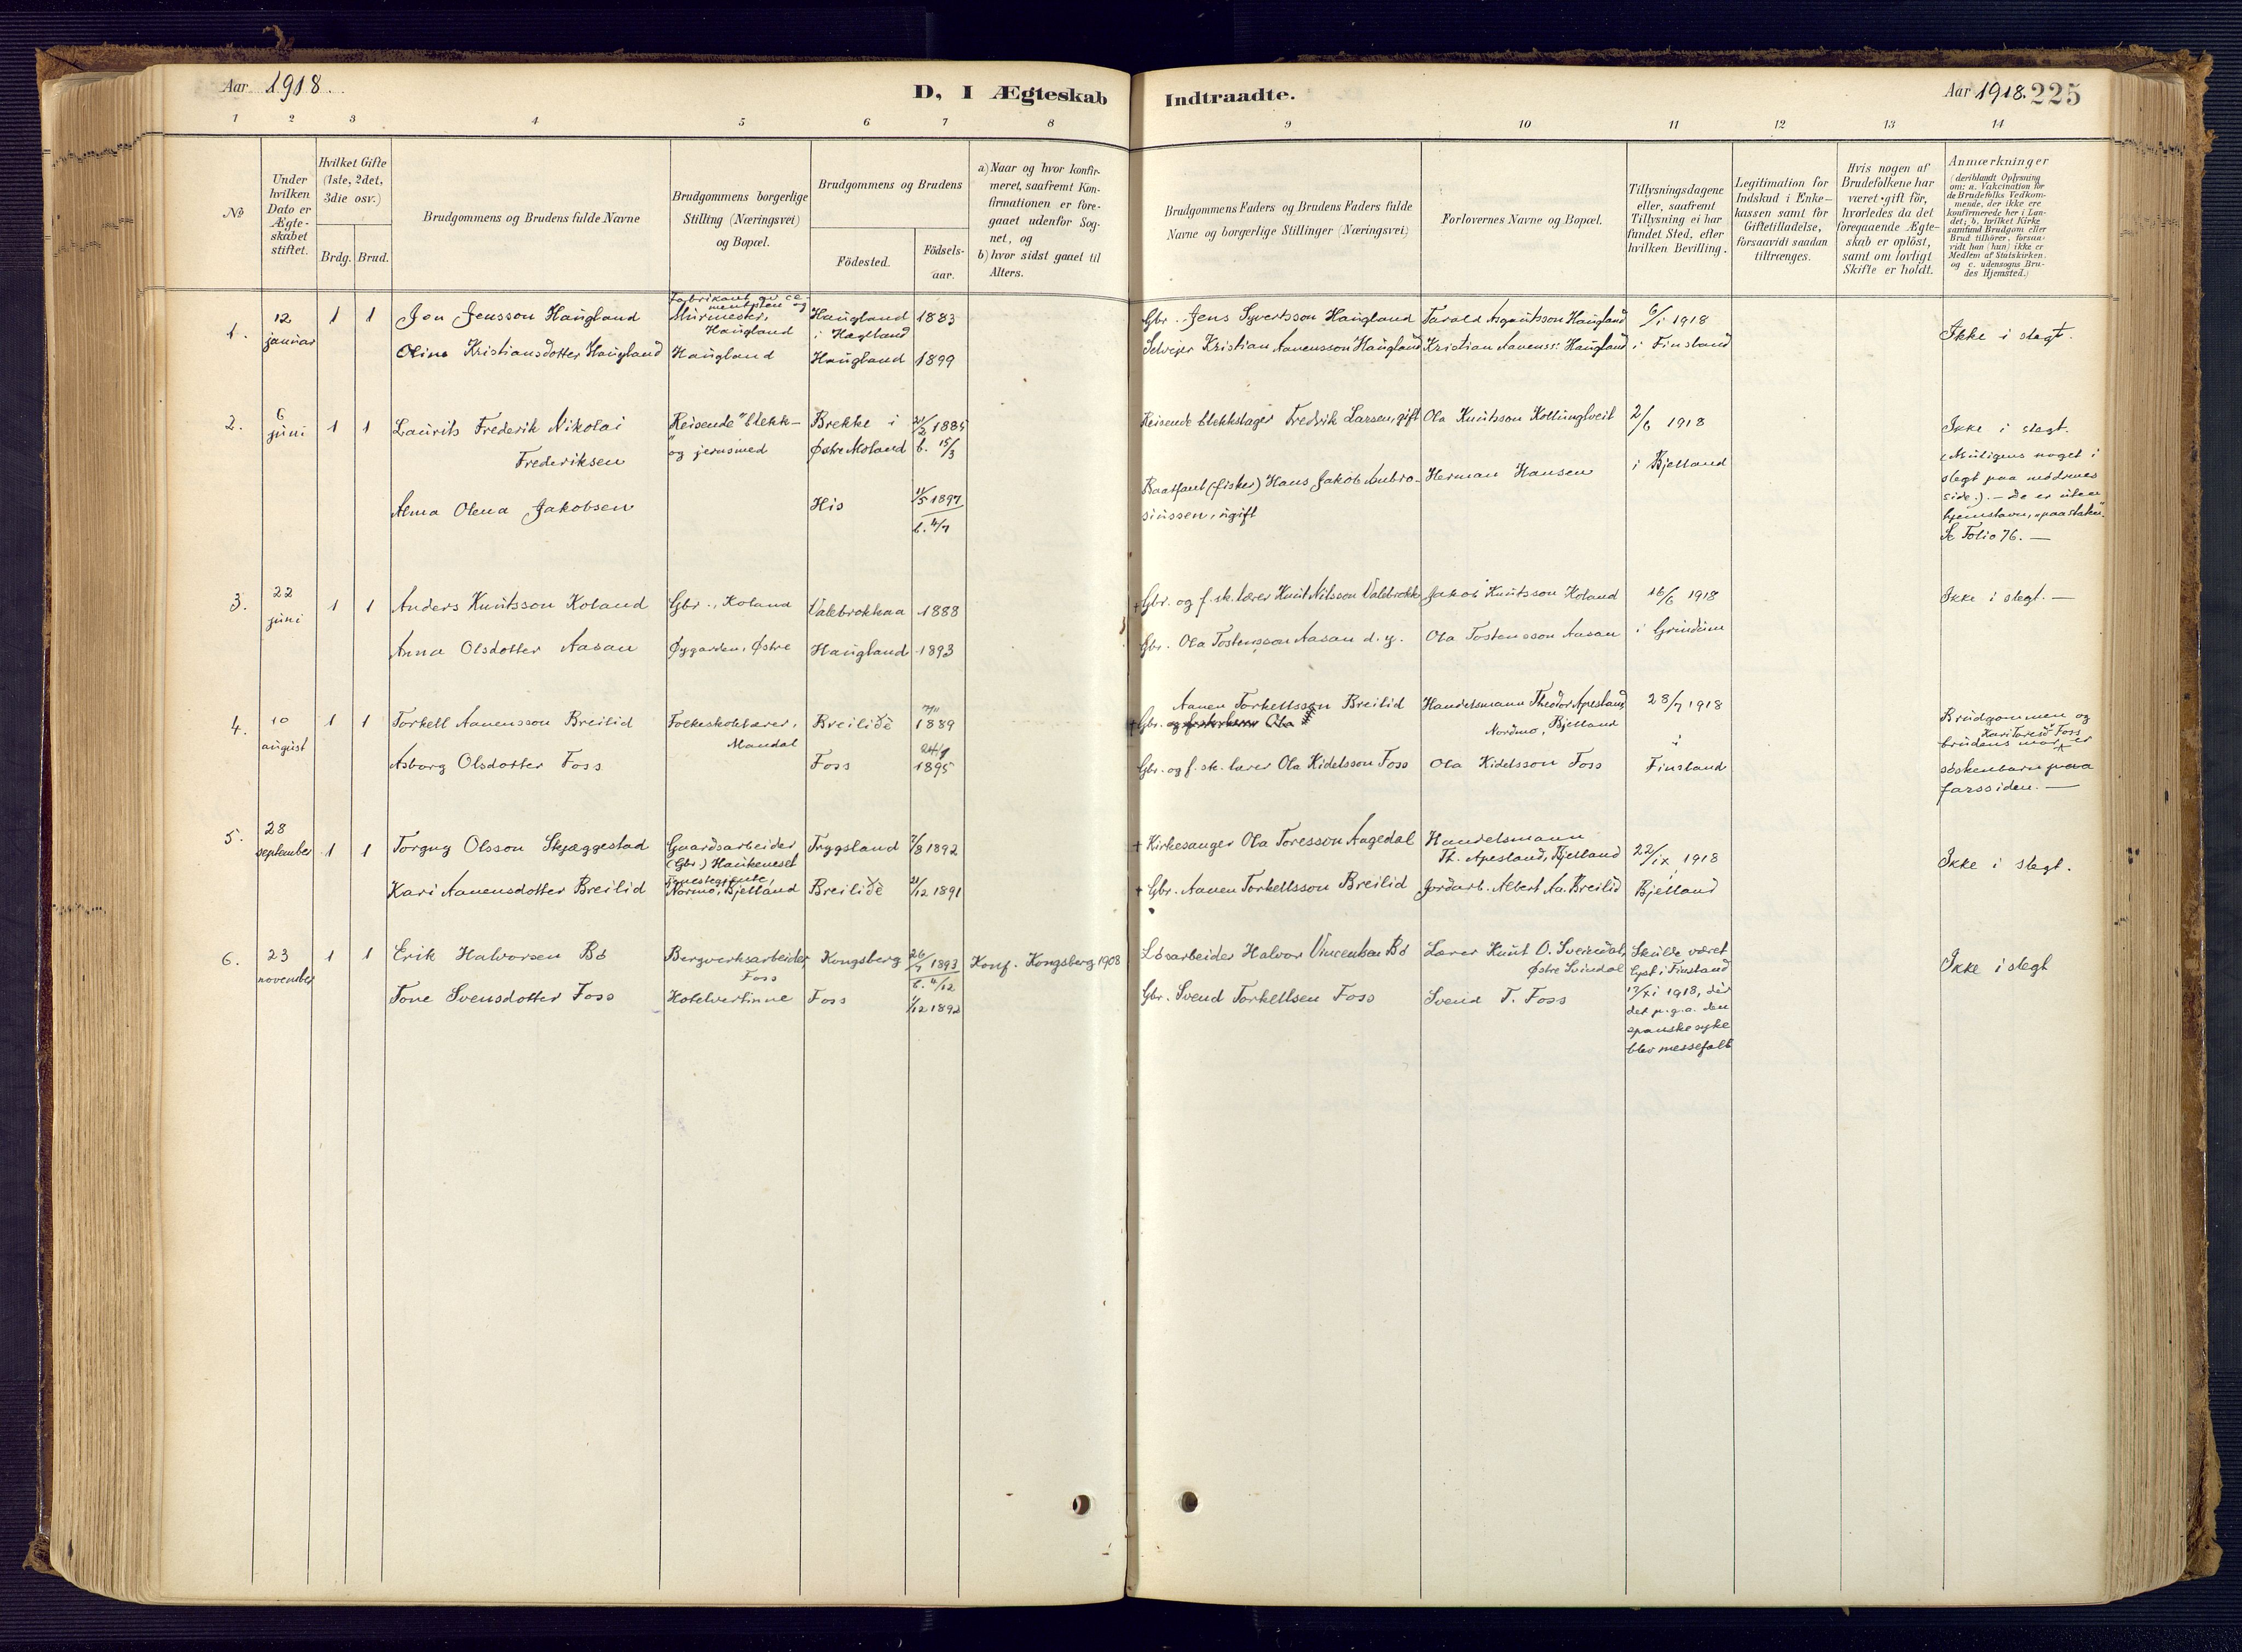 Aar 1918.
D, I Ægteskab Indtraadte.
Aar 1918. 225
1 2 3 4 5 6 7 8 9 10 11 12 13 14
No
Under hvilken Dato er Ægteskabet stiftet.
Hvilket Gifte (1ste, 2det, 3die osv.)
Brdg. Brud.
Brudgommens og Brudens fulde Navne
Brudgommens borgerlige Stilling (Næringsvei) og Bopæl.
Brudgommens og Brudens
Födested.
Födsels-aar.
a) Naar og hvor konfirmeret, saafremt Konfirmationen er foregaaet udenfor Sognet, og
b) hvor sidst gaaet til Alters.
Brudgommens Faders og Brudens Faders fulde Navne og borgerlige Stillinger (Næringsvei)
Forlovernes Navne og Bopæl.
Tillysningsdagene eller, saafremt Tillysning ei har fundet Sted, efter hvilken Bevilling.
Legitimation for Indskud i Enkekassen samt for Giftetilladelse, forsaavidt saadan tiltrænges.
Hvis nogen af Brudefolkene har været gift för, hvorledes da det foregaaende Ægteskab er oplöst, samt om lovligt Skifte er holdt.
Anmærkninger (deriblandt Oplysning om: a. Vakcination for de Brudefolks Vedkommende, der ikke ere konfirmerede her i Landet; b. hvilket Kirkesamfund Brudgom eller Brud tilhörer, forsaavidt han (hun) ikke er Medlem af Statskirken, og c. udensogns Brudes Hjemsted.)
1. 12 januar 1 1
Jon Jensson Haugland
Fabrikant av cementsten og Murmester, Haugland
Haugland i Hægland 1883
Gbr. Jens Syvertsson Haugland
Tarald Asgautsson Haugland
6/1 1918
Ikke i slegt.
Oline Kristiansdotter Haugland
Haugland
Haugland 1899
Selveier Kristian Aanensson Haugland
Kristian Aanenss: Haugland
i Finsland
2. 6 juni 1 1
Laurits Frederik Nikolai Frederiksen
Reisende "blekk- og jernsmed
Brekke i Østre Moland
21/2 1885
b. 15/3
Reisende blekkslager Fredrik Larsen, gift
Ola Knutsson Kollungtveit
2/6 1918
Ikke i slegt.
(Muligens noget i slegt paa mødrenes side.). — De er uten hjemstavn, "paa staken".
Se Folio 76. —
Alma Olena Jakobsen
His
11/5 1897
b. 4/7
Baatfant (fisker) Hans Jakob Ambrosiussen, ugift
Herman Hansen
i Bjelland
3. 22 juni 1 1
Anders Knutsson Koland
Gbr., Koland
Valebrokkaa 1888
+ Gbr. og f. sk. lærer Knut Nilsson Valebrokk
Jakob Knutsson Koland
16/6 1918
Ikke i slegt. —
Anna Olsdotter Aasan
Øygarden, Østre
Haugland 1893
Gbr. Ola Tostensson Aasan d. y.
Ola Tostensson Aasan
i Grindum
4. 10 august 1 1
Torkell Aanensson Breilid
Folkeskolelærer, Mandal
Breilidè
1889
Aanen Torkellsson Breilid
+ Gbr.
Handelsmann Theodor Apesland, Nordmo, Bjelland
28/7 1918
Brudgommen og brudens mor Kari Toresd Foss er søskenbarn paa farssiden. —
Asborg Olsdotter Foss
Foss
1895
Gbr. og f. sk. lærer Ola Kidelsson Foss
Ola Kidelsson Foss
i Finsland
5. 28 september 1 1
Torgny Olsson Skjæggestad
Gaardsarbeider (Gbr.) Haukenesel
Trygsland 7/8 1892
+ Kirkesanger Ola Toresson Aagedal
Handelsmann Th. Apesland, Bjelland
22/ix 1918
Ikke i slegt.
Kari Aanensdotter Breilid
Tjenestegjente, Normo, Bjelland
Breilidè 21/12 1891
+ Gbr. Aanen Torkellsson Breilid
Jordarb. Albert Aa. Breilid
i Bjelland
6. 23 november 1 1
Erik Halvorsen Bø
Bergverksarbeider, Foss
Kongsberg
26/7 1893
b. 4/12
Konf. Kongsberg 1908
Løsarbeider Halvor Vincentsen Bø
Lærer Knut O. Sveindal, Østre Svindal
Skulde været lyst i Finsland 17/xi 1918, der det p.g.a. den spanske syke blev messefalt
Ikke i slegt
Tone Svensdotter Foss
Hotelvertinne
Foss
1/12 1892
Gbr. Svend Torkellsen Foss
Svend T. Foss